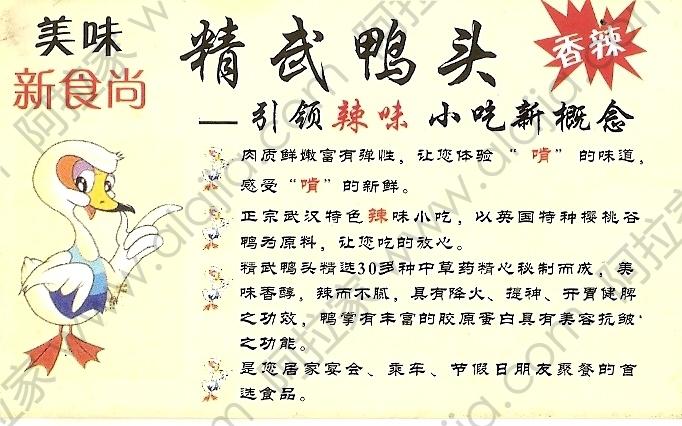 美味
新食尚
精武鸭头
香辣
—引领辣味 小吃新概念
肉质鲜嫩富有弹性，让您体验“啃”的味道，
感受“啃”的新鲜。
正宗武汉特色辣味小吃，以英国特种樱桃谷
鸭为原料，让您吃的放心。
精武鸭头精选30多种中草药精心秘制而成，美
味香醇，辣而不腻，具有降火、提神、开胃健脾
之功效，鸭掌有丰富的胶原蛋白具有美容抗皱
之功能。
是您居家宴会、乘车、节假日朋友聚餐的首
选食品。
阿拉家 www.alajia.com